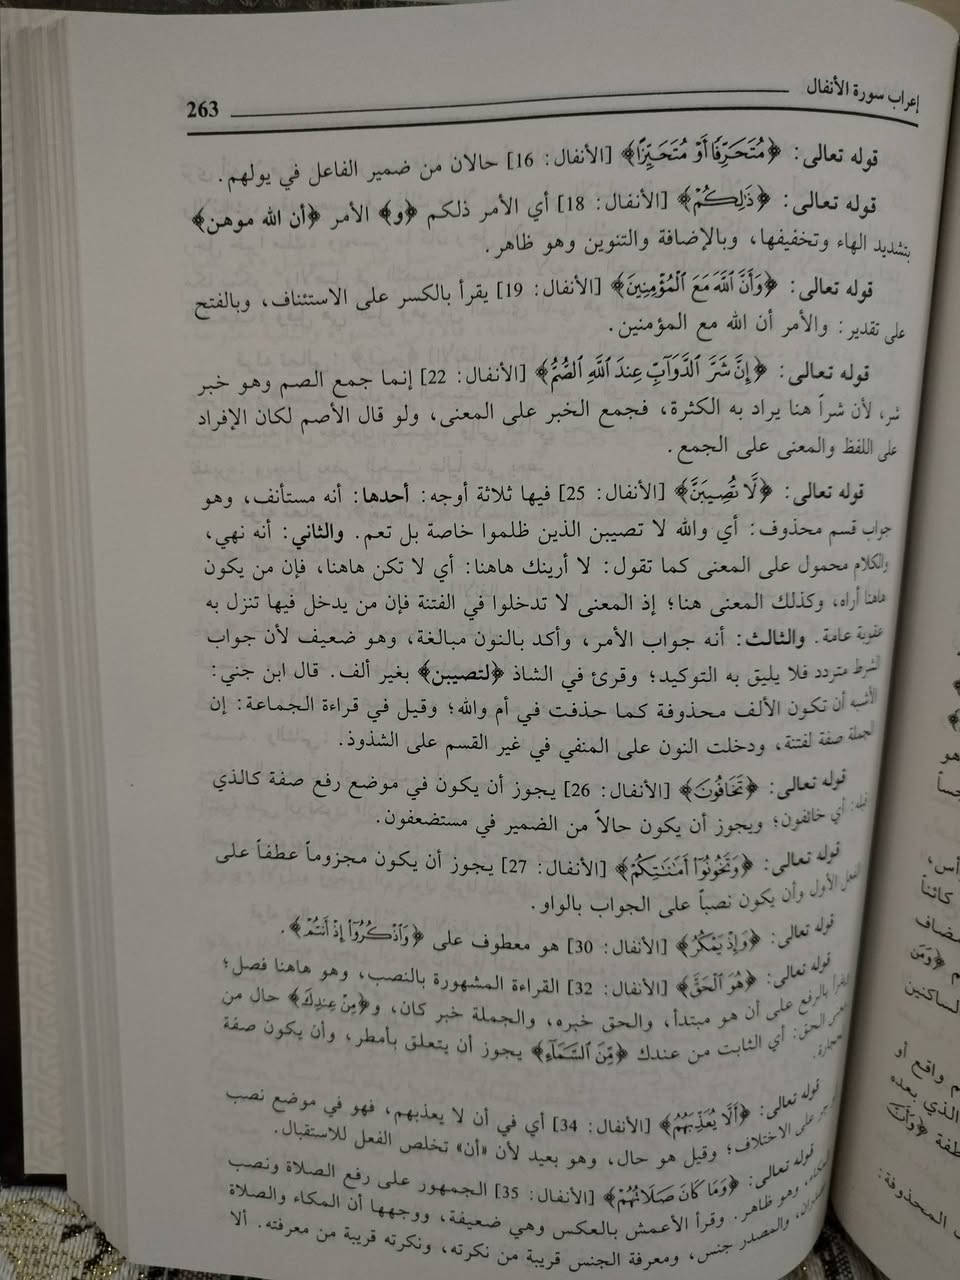 إعراب سورة الأنفال 263
قوله تعالى: ﴿مُتَحَرِّفًا أَوْ مُتَحَيِّزًا﴾ [الأنفال: 16] حالان من ضمير الفاعل في يولهم.
قوله تعالى: ﴿ذَٰلِكُمْ﴾ [الأنفال: 18] أي الأمر ذلكم ﴿و﴾ الأمر ﴿أن الله موهن﴾
بتشديد الهاء وتخفيفها، وبالإضافة والتنوين وهو ظاهر.
قوله تعالى: ﴿وَأَنَّ ٱللَّهَ مَعَ ٱلْمُؤْمِنِينَ﴾ [الأنفال: 19] يقرأ بالكسر على الاستئناف، وبالفتح
على تقدير: والأمر أن الله مع المؤمنين.
قوله تعالى: ﴿إِنَّ شَرَّ ٱلدَّوَآبِّ عِندَ ٱللَّهِ ٱلصُّمُّ﴾ [الأنفال: 22] إنما جمع الصم وهو خبر
شر، لأن شراً هنا يراد به الكثرة، فجمع الخبر على المعنى، ولو قال الأصم لكان الإفراد
على اللفظ والمعنى على الجمع.
قوله تعالى: ﴿لَّا تُصِيبَنَّ﴾ [الأنفال: 25] فيها ثلاثة أوجه: أحدها: أنه مستأنف، وهو
جواب قسم محذوف: أي والله لا تصيبن الذين ظلموا خاصة بل تعم. والثاني: أنه نهي،
والكلام محمول على المعنى كما تقول: لا أرينك هاهنا: أي لا تكن هاهنا، فإن من يكون
هاهنا أراه، وكذلك المعنى هنا؛ إذ المعنى لا تدخلوا في الفتنة فإن من يدخل فيها تنزل به
عقوبة عامة. والثالث: أنه جواب الأمر، وأكد بالنون مبالغة، وهو ضعيف لأن جواب
الشرط متردد فلا يليق به التوكيد؛ وقرئ في الشاذ ﴿لتصيبن﴾ بغير ألف. قال ابن جني:
الأشبه أن تكون الألف محذوفة كما حذفت في أم والله؛ وقيل في قراءة الجماعة: إن
الجملة صفة لفتنة، ودخلت النون على المنفي في غير القسم على الشذوذ.
قوله تعالى: ﴿تَخَافُونَ﴾ [الأنفال: 26] يجوز أن يكون في موضع رفع صفة كالذي
قبله: أي خائفون؛ ويجوز أن يكون حالاً من الضمير في مستضعفون.
قوله تعالى: ﴿وَتَخُونُوٓا۟ أَمَٰنَٰتِكُمْ﴾ [الأنفال: 27] يجوز أن يكون مجزوماً عطفاً على
الفعل الأول وأن يكون نصباً على الجواب بالواو.
قوله تعالى: ﴿وَإِذْ يَمْكُرُ﴾ [الأنفال: 30] هو معطوف على ﴿وَٱذْكُرُوٓا۟ إِذْ أَنتُمْ﴾.
قوله تعالى: ﴿هُوَ ٱلْحَقَّ﴾ [الأنفال: 32] القراءة المشهورة بالنصب، وهو هاهنا فصل؛
ويقرأ بالرفع على أن هو مبتدأ، والحق خبره، والجملة خبر كان، و﴿مِنْ عِندِكَ﴾ حال من
معنى الحق: أي الثابت من عندك ﴿مِّنَ ٱلسَّمَآءِ﴾ يجوز أن يتعلق بأمطر، وأن يكون صفة
لحجارة.
قوله تعالى: ﴿أَلَّا يُعَذِّبَهُمُ﴾ [الأنفال: 34] أي في أن لا يعذبهم، فهو في موضع نصب
جر على الاختلاف؛ وقيل هو حال، وهو بعيد لأن «أن» تخلص الفعل للاستقبال.
قوله تعالى: ﴿وَمَا كَانَ صَلَاتُهُمْ﴾ [الأنفال: 35] الجمهور على رفع الصلاة ونصب
وهو ظاهر. وقرأ الأعمش بالعكس وهي ضعيفة، ووجهها أن المكاء والصلاة
والمصدر جنس، ومعرفة الجنس قريبة من نكرته، ونكرته قريبة من معرفته. ألا